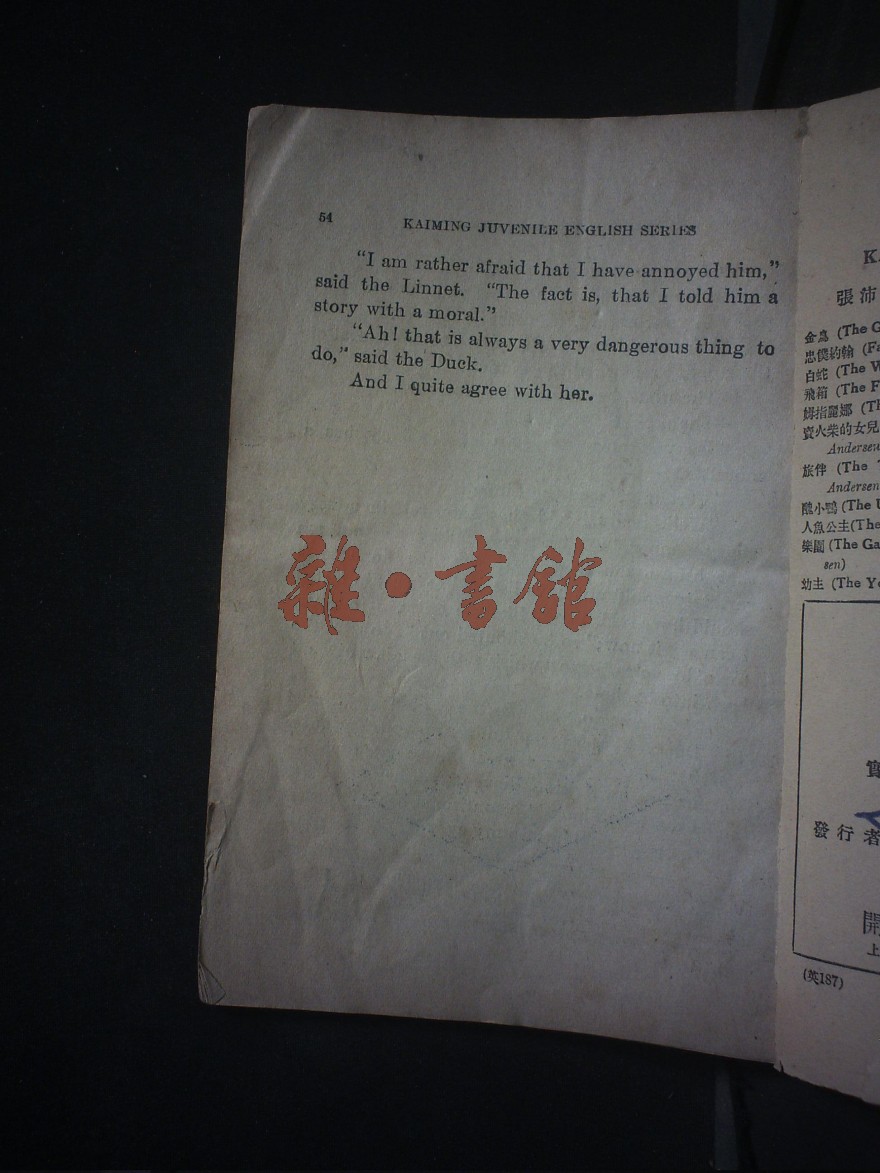 54
KAIMING JUVENILE ENGLISH SERIES
"I am rather afraid that I have annoyed him,"
said the Linnet. "The fact is, that I told him a
story with a moral."
"Ah! that is always a very dangerous thing to
do," said the Duck.
And I quite agree with her.
雜·書館
K
張沛
金鳥 (The G
忠僕約翰 (Fa
白蛇 (The W
飛箱 (The F
姆指麗娜 (Th
賣火柴的女兒
Andersen
旅伴 (The
Andersen
醜小鴨 (The U
人魚公主 (The
樂園 (The Ga
sen)
幼主 (The Yo
發行者
開
上
(英187)